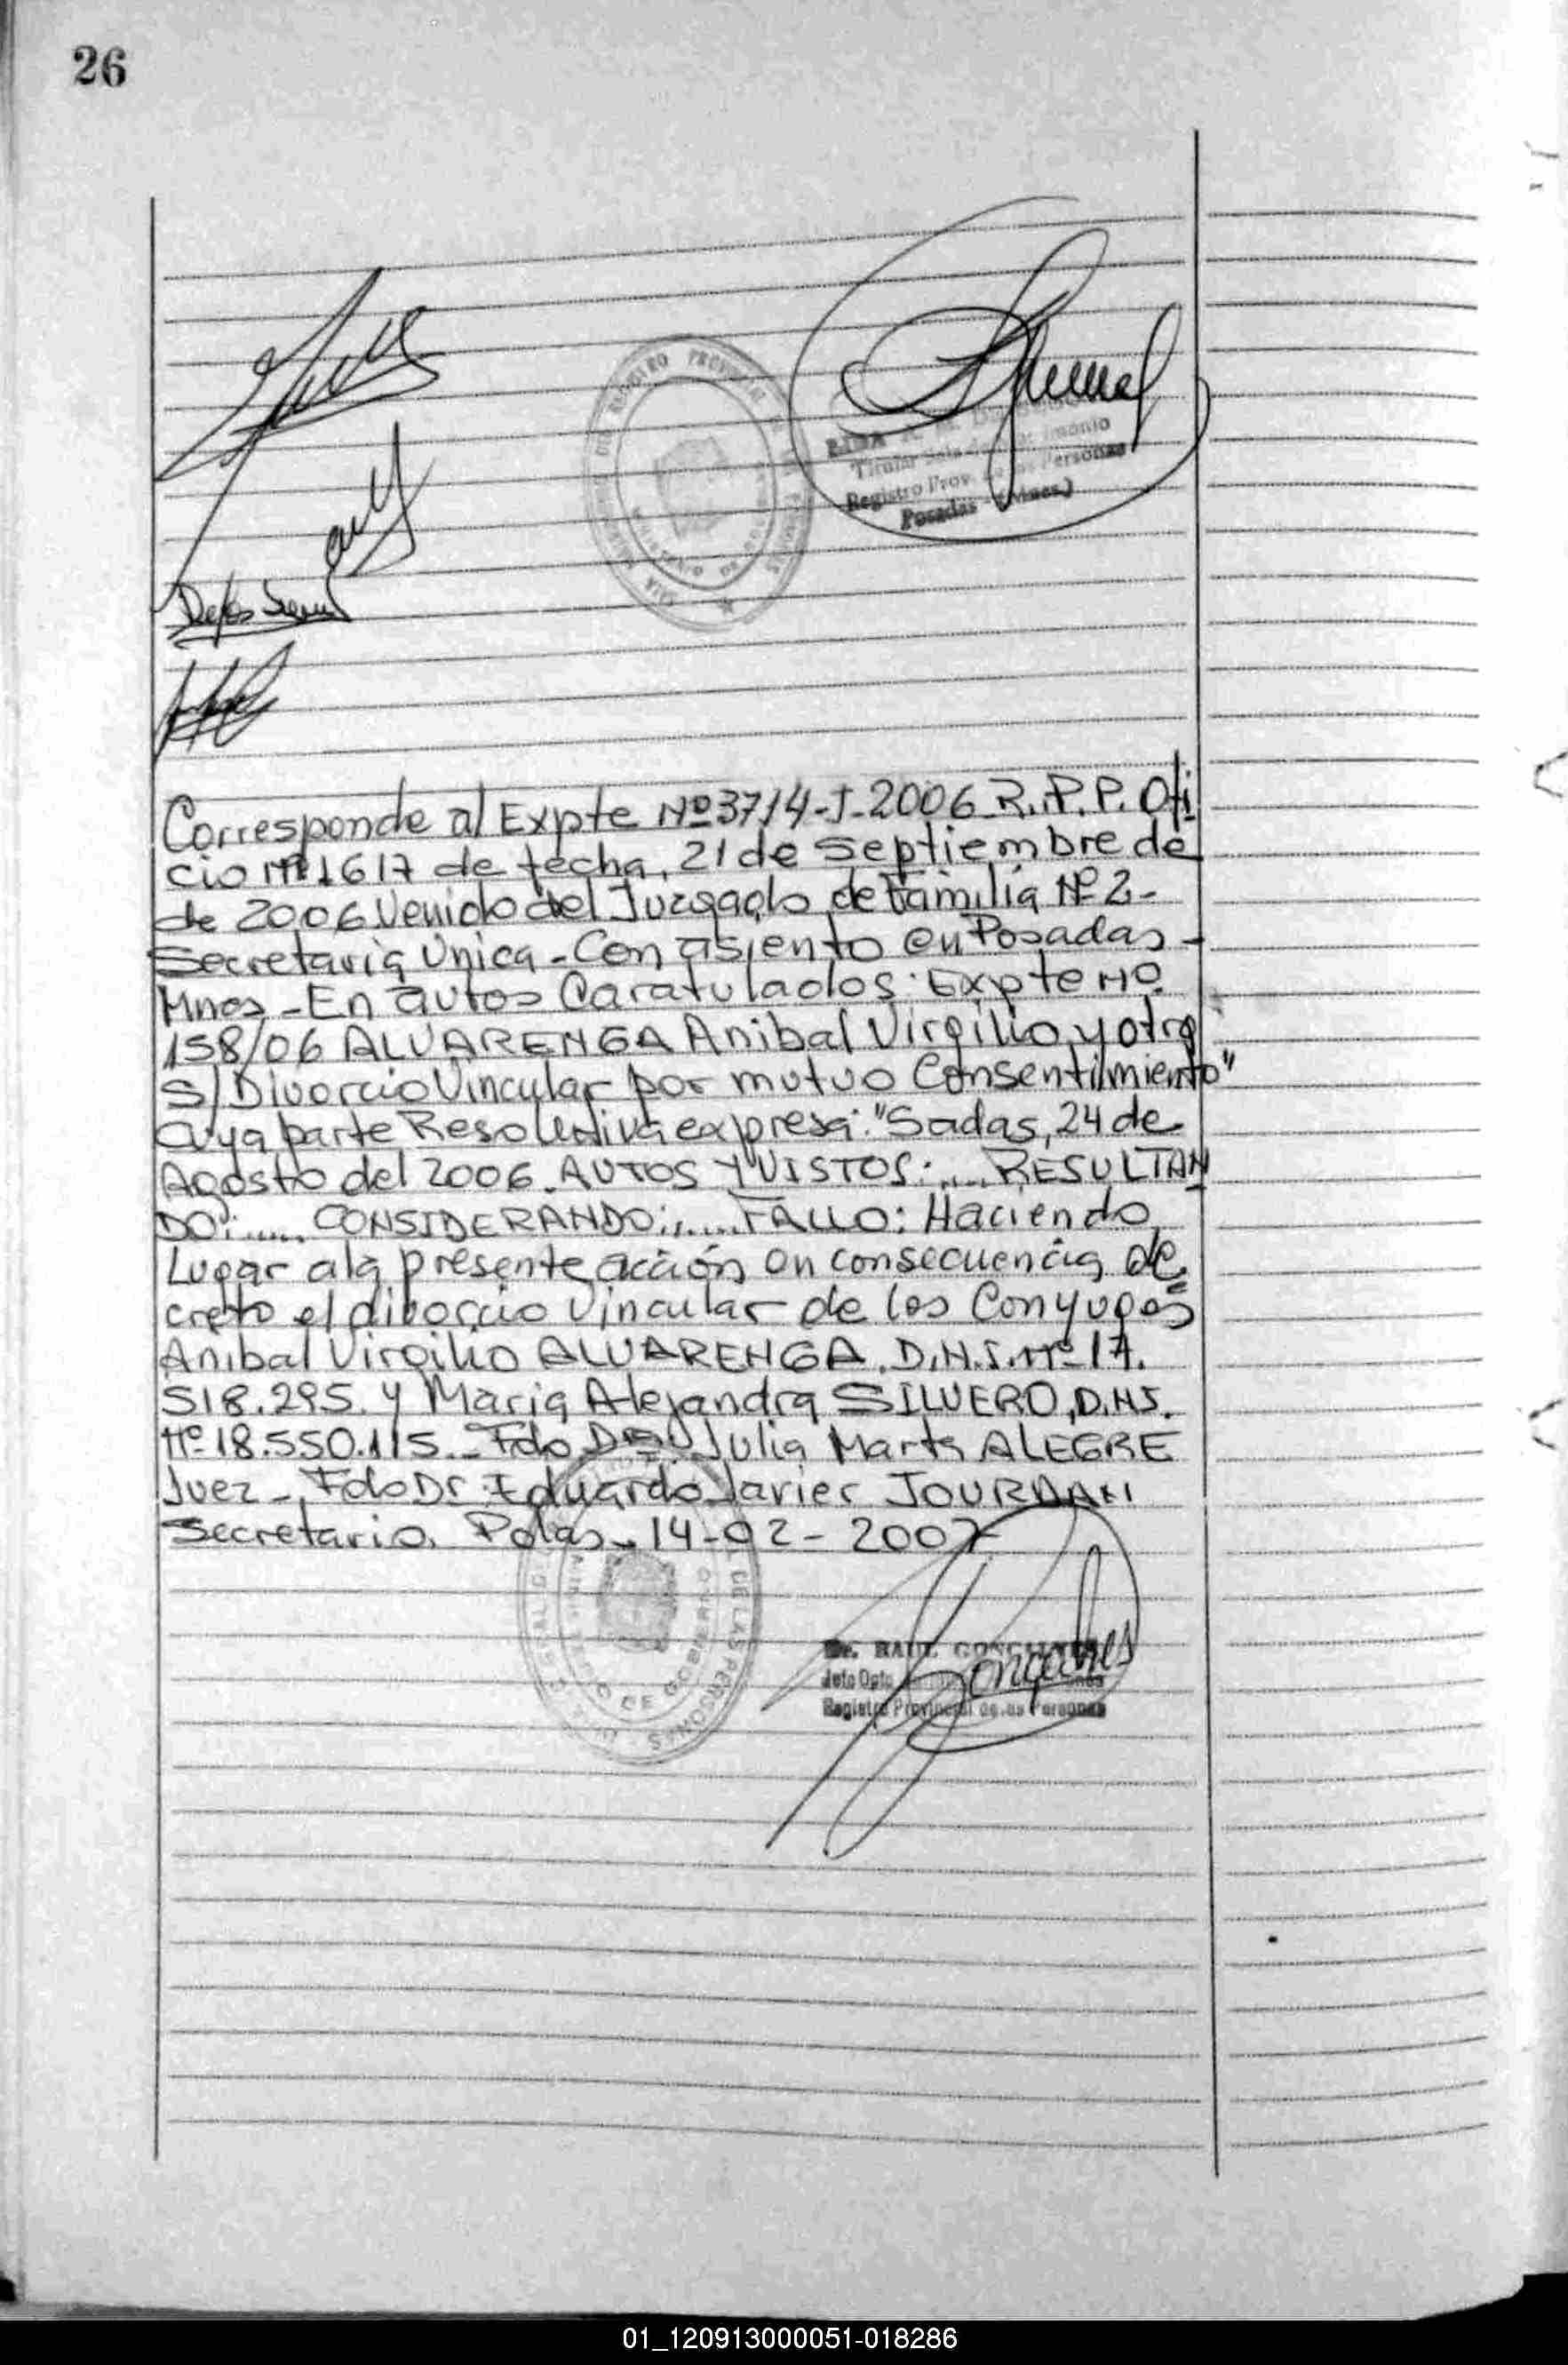 26
REGISTRO PROVINCIAL
Titular
Registro Prov. de las Personas
Posadas - (Mnes.)
Corresponde al Expte Nº 3714-J-2006 R.P.P. Ofi
cio Nº 1617 de fecha, 21 de Septiembre de
de 2006 Venido del Juzgado de Familia Nº 2-
Secretaria Unica - Con asiento en Posadas -
Mnes - En autos Caratulados: Expte Nº
158/06 ALVARENGA Anibal Virgilio y otra
S/ Divorcio Vincular por mutuo Consentimiento"
Cuya parte Resolutiva expresa: "Sadas, 24 de
Agosto del 2006. AUTOS Y VISTOS:.... RESULTAN
DO:..... CONSIDERANDO:..... FALLO: Haciendo
Lugar a la presente acción en consecuencia de
creto el divorcio Vincular de los Conyuges
Anibal Virgilio ALVARENGA. D.N.I. Nº 17.
518.295. y Maria Alejandra SILVERO, D.N.I.
Nº 18.550.115.- Fdo Julia Marta ALEGRE
Juez - Fdo Dr. Eduardo Javier JOURDAN
Secretario. Pdas - 14-02-2007
DE LAS PERSONAS
DE GOBIERNO
Dr. RAUL GONCALVES
Gonçalves
Registro Provincial de las Personas
01_120913000051-018286